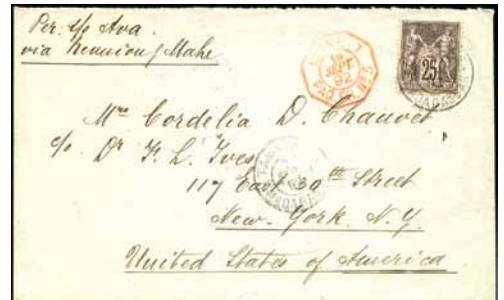 Per s/s Ava.
via Reunion & Mahe
25
Mrs Cordelia D. Chauvet
c/o Dr F. L. Ives
117 East 30th Street
New-York N.Y.
United States of America